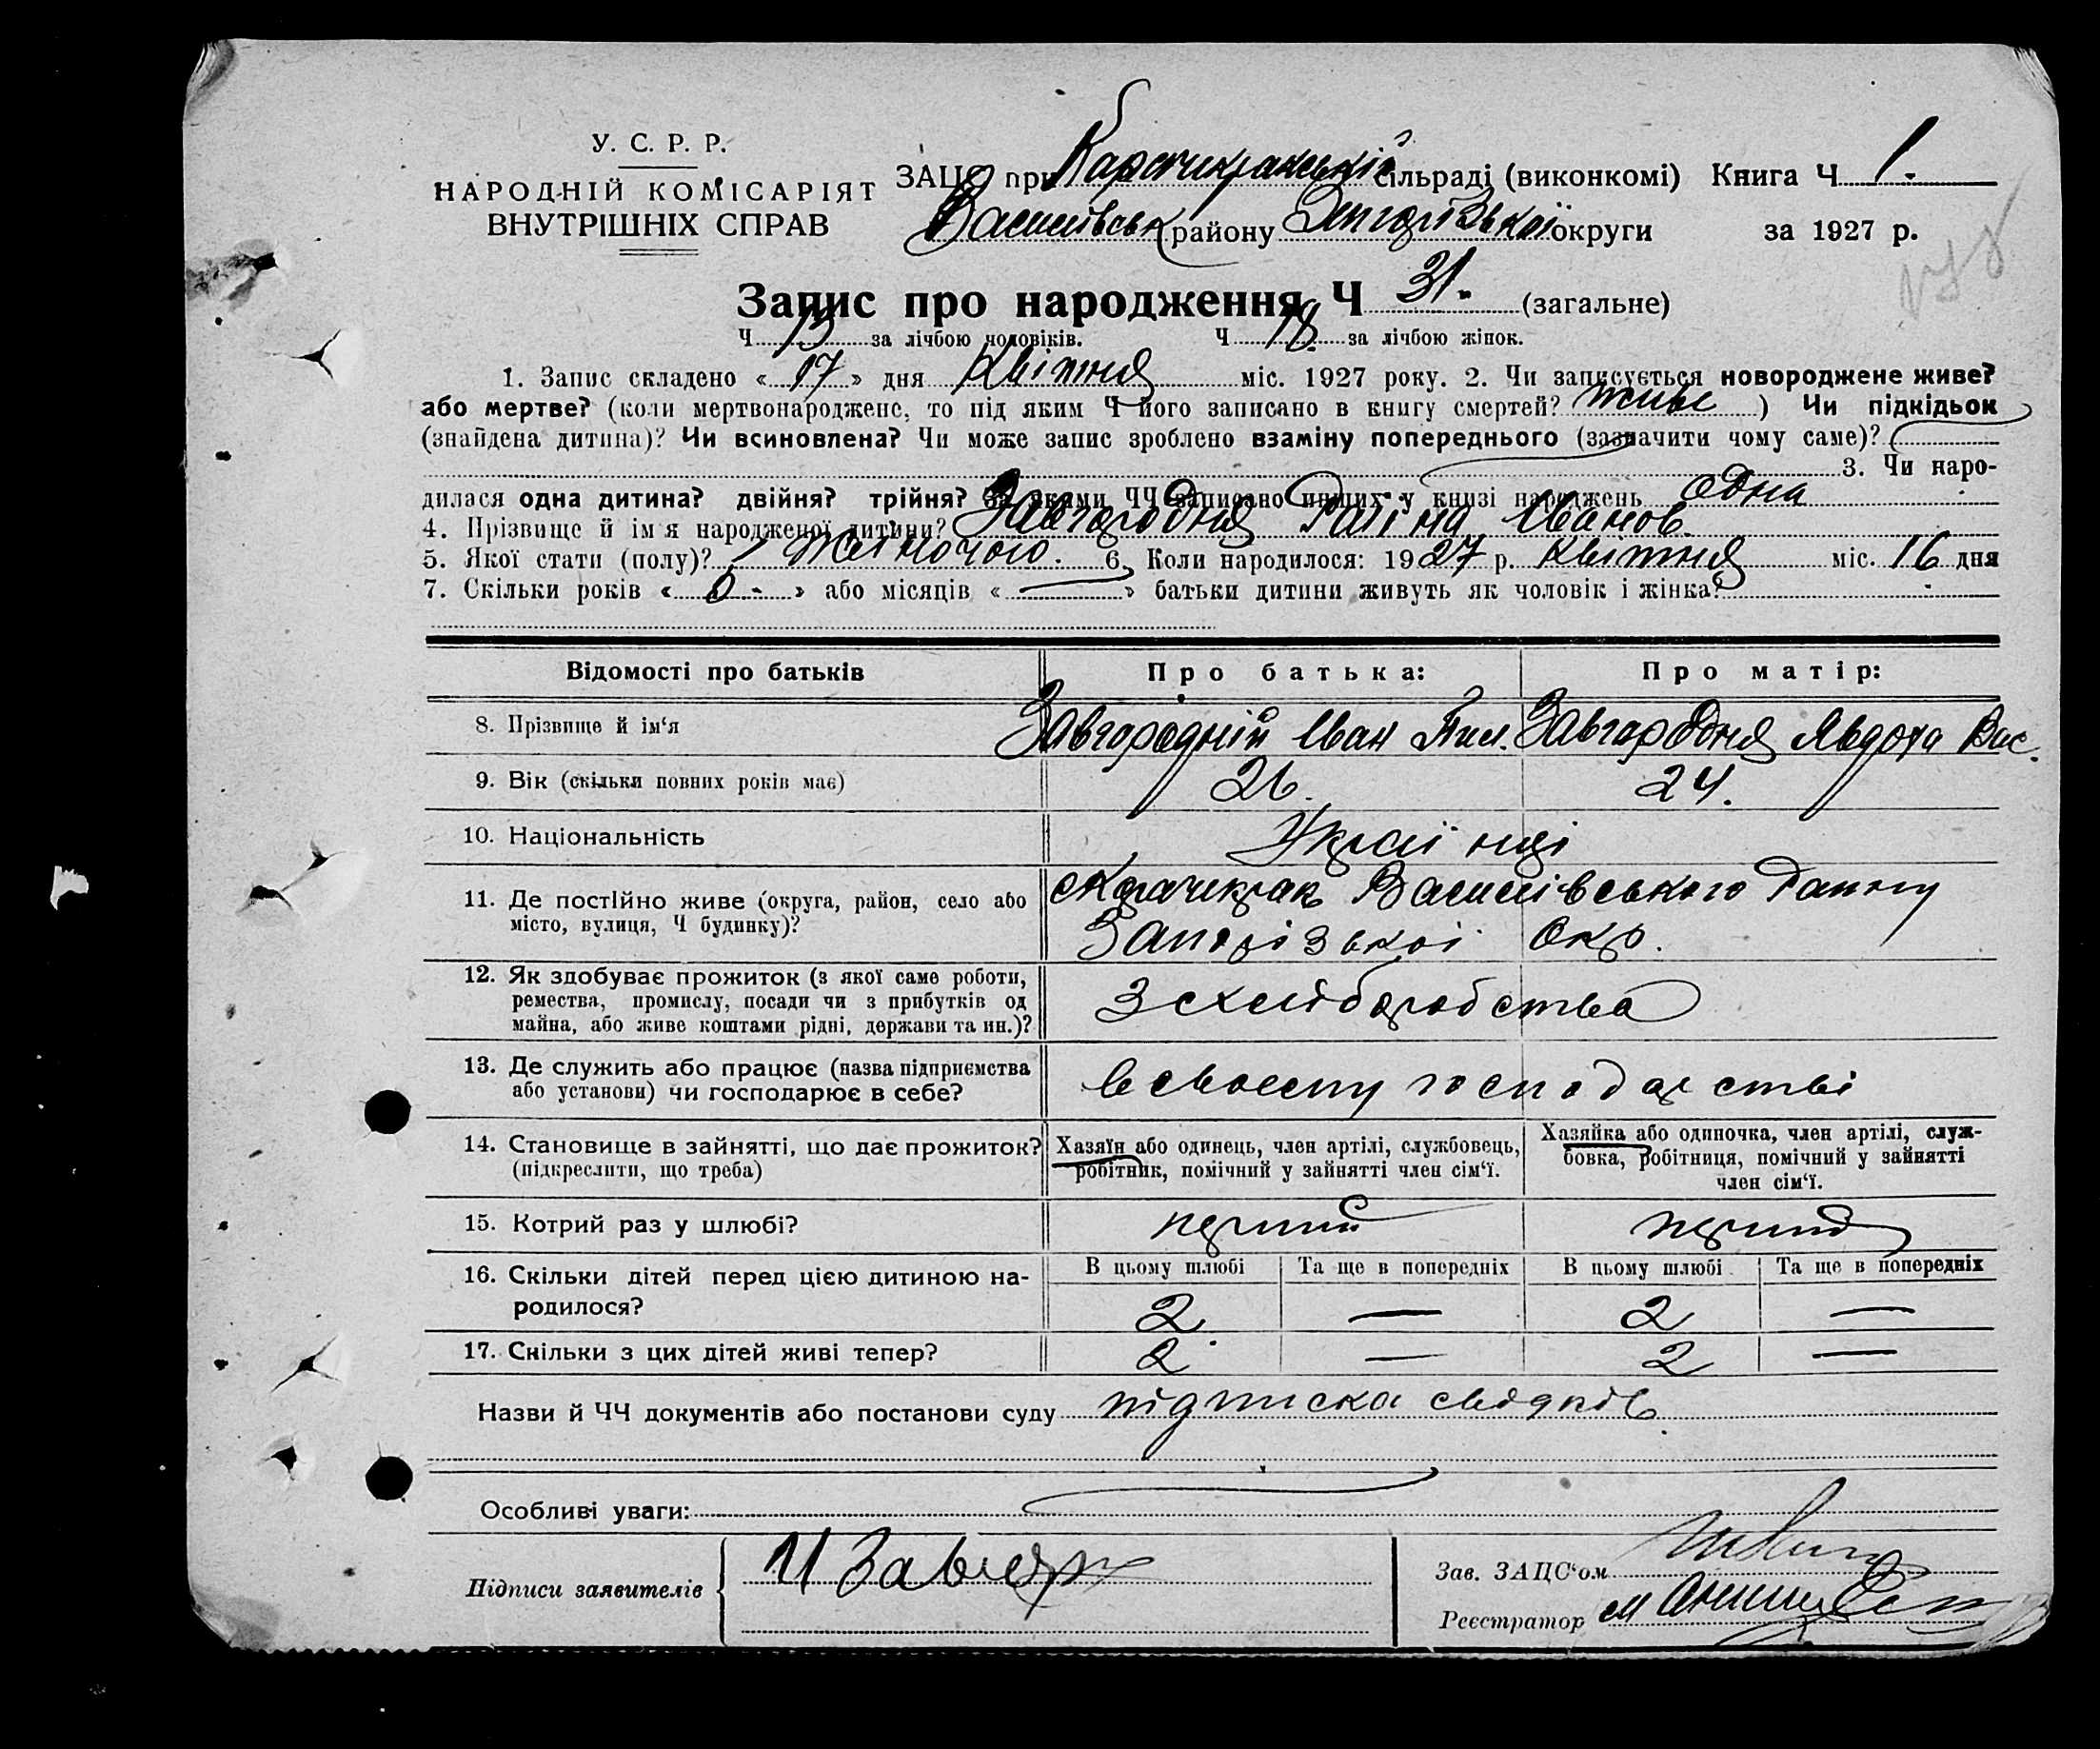 У. С. Р. Р.
НАРОДНІЙ КОМІСАРІЯТ
ВНУТРІШНІХ СПРАВ
ЗАЦС при Карачикракській сільраді (виконкомі) Книга Ч 1.
Василівськ району Запорізької округи за 1927 р.
Запис про народження Ч 31. (загальне)
Ч 13 за лічбою чоловіків. Ч 18. за лічбою жінок.
1. Запис складено « 17 » дня Квітня міс. 1927 року. 2. Чи записується новороджене живе?
або мертве? (коли мертвонароджене, то під яким Ч його записано в книгу смертей? живе ) Чи підкідьок
(знайдена дитина)? Чи всиновлена? Чи може запис зроблено взаміну попереднього (зазначити чому саме)?
3. Чи наро-
дилася одна дитина? двійня? трійня? За якими ЧЧ записано инших у книзі народжень одна
4. Прізвище й ім'я народженої дитини? Завгородня Раїна Іванов.
5. Якої стати (полу)? жіночого. 6. Коли народилося: 1927 р. квітня міс. 16 дня
7. Скільки років « 6 - » або місяців « — » батьки дитини живуть як чоловік і жінка?
Відомості про батьків Про батька: Про матір:
8. Прізвище й ім'я Завгородній Іван Пил. Завгородня Явдоха Вас.
9. Вік (скільки повних років має) 26. 24.
10. Національність Українці
11. Де постійно живе (округа, район, село або місто, вулиця, Ч будинку)? с Карачикрак Василівського Району
Запорізької Окр.
12. Як здобуває прожиток (з якої саме роботи,
ремества, промислу, посади чи з прибутків од
майна, або живе коштами рідні, держави та ин.)? З хліборобства
13. Де служить або працює (назва підприємства
або установи) чи господарює в себе? в своему господарстві
14. Становище в зайнятті, що дає прожиток?
(підкреслити, що треба)
Хазяїн або одинець, член артілі, службовець,
робітник, помічний у зайнятті член сім'ї.
Хазяйка або одиночка, член артілі, служ-
бовка, робітниця, помічний у зайнятті
член сім'ї.
15. Котрий раз у шлюбі? перший перший
16. Скільки дітей перед цією дитиною на-
родилося?
В цьому шлюбі Та ще в попередніх В цьому шлюбі Та ще в попередніх
2 — 2 —
17. Скільки з цих дітей живі тепер? 2 — 2 —
Назви й ЧЧ документів або постанови суду підписка свідків
Особливі уваги:
Підписи заявителів
Зав. ЗАЦС'ом
Реєстратор